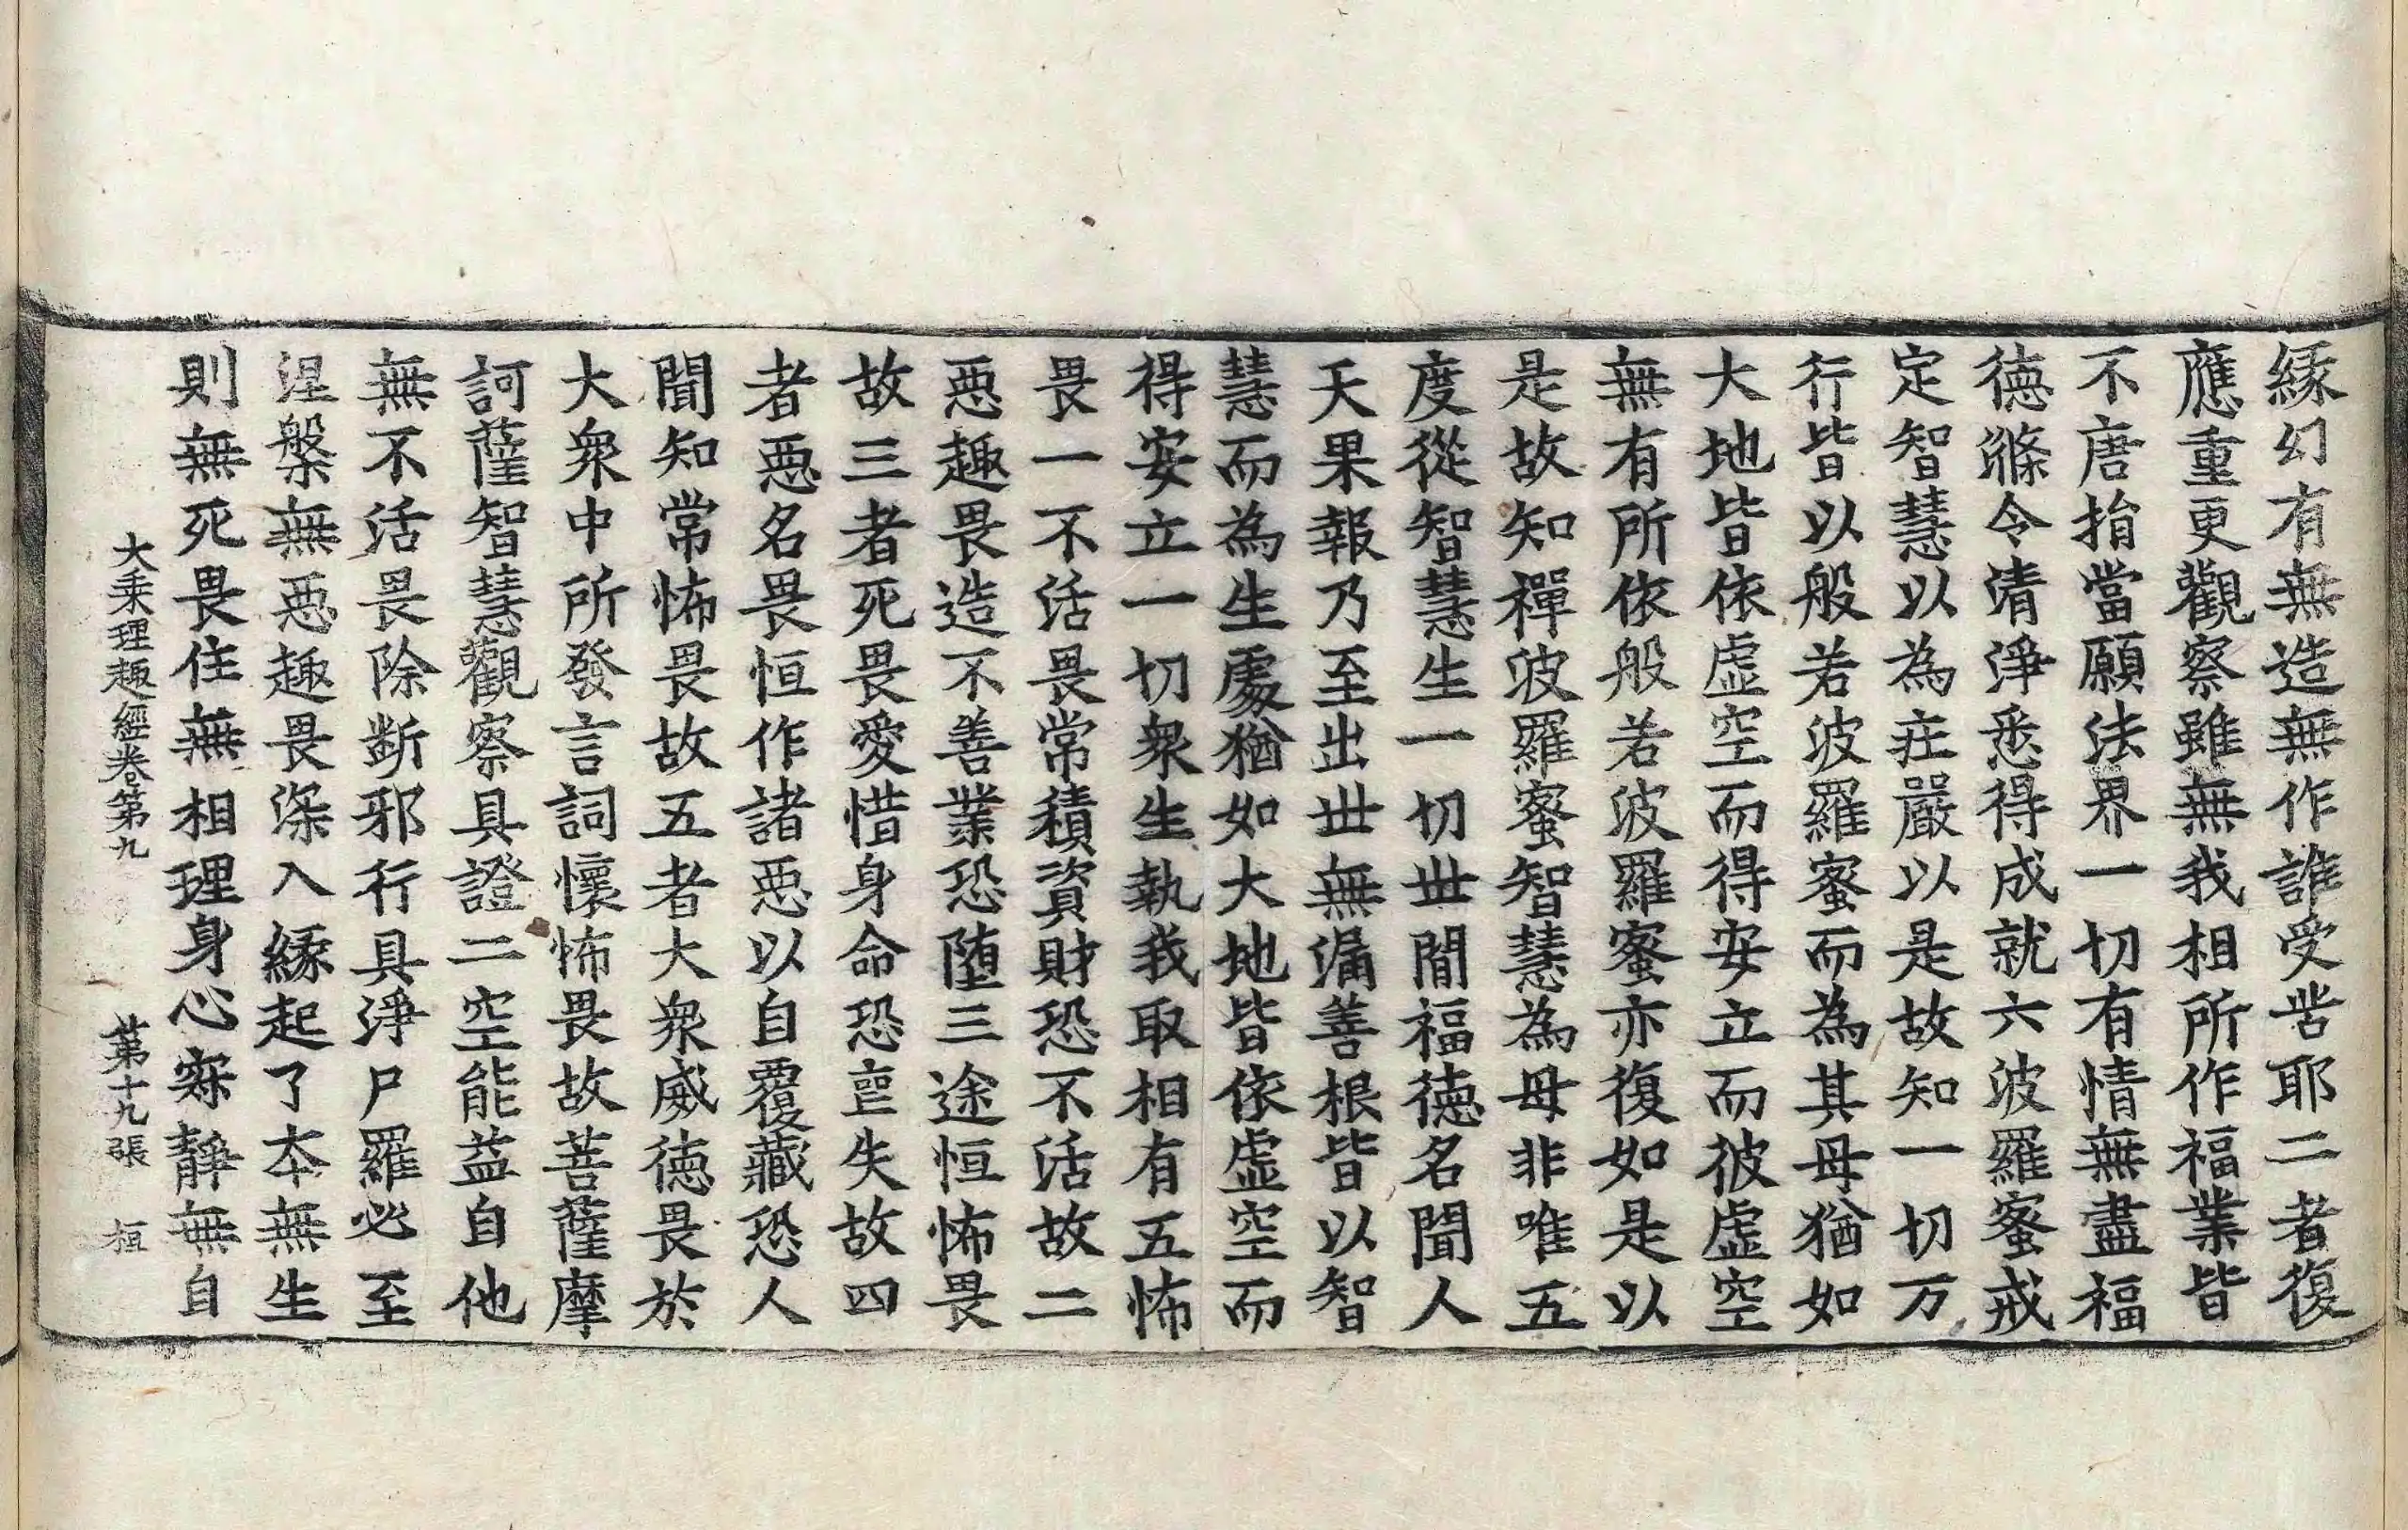 縁幻有無造無作誰受苦耶二者復
應重更觀察雖無我相所作福業皆
不唐捐當願法界一切有情無盡福
徳滌令清淨悉得成就六波羅蜜戒
定智慧以為莊嚴以是故知一切万
行皆以般若波羅蜜而為其母猶如
大地皆依虛空而得安立而彼虛空
無有所依般若波羅蜜亦復如是以
是故知禪波羅蜜智慧為母非唯五
度從智慧生一切世間福徳名聞人
天果報乃至出世無漏善根皆以智
慧而為生處猶如大地皆依虛空而
得安立一切衆生執我取相有五怖
畏一不活畏常積資財恐不活故二
惡趣畏造不善業恐墮三途恒怖畏
故三者死畏愛惜身命恐喪失故四
者惡名畏恒作諸惡以自覆藏恐人
聞知常怖畏故五者大衆威徳畏於
大衆中所發言詞懷怖畏故菩薩摩
訶薩智慧觀察具證二空能益自他
無不活畏除斷邪行具淨尸羅必至
涅槃無惡趣畏深入縁起了本無生
則無死畏住無相理身心寂靜無自
大乘理趣經卷第九 第十九張 桓